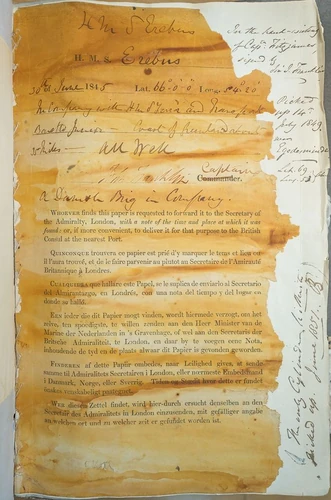 H M S Erebus
H. M. S. Erebus
30th June 1845 Lat. 66° 0' 0" Long. 54° 20'
In Company with H M S Terror and Transport
Coast of about
miles. All Well
Captain
Commander.
a Danish Brig in Company.
WHOEVER finds this paper is requested to forward it to the Secretary of
the Admiralty, London, with a note of the time and place at which it was
found: or, if more convenient, to deliver it for that purpose to the British
Consul at the nearest Port.
QUINCONQUE trouvera ce papier est prié d'y marquer le tems et lieu ou
il l'aura trouvé, et de le faire parvenir au plutot au Secretaire de l'Amirauté
Britannique à Londres.
CUALQUIERA que hallare este Papel, se le suplica de enviarlo al Secretario
del Almirantazgo, en Londrés, con una nota del tiempo y del lugar en
donde se halló.
EEN ieder die dit Papier mogt vinden, wordt hiermede verzogt, om het
zelve, ten spoedigste, te willen zenden aan den Heer Minister van de
Marine der Nederlanden in 's Gravenhage, of wel aan den Secretaris der
Britsche Admiraliteit, te London, en daar by te voegen eene Nota,
inhoudende de tyd en de plaats alwaar dit Papier is gevonden geworden.
FINDEREN af dette Papiir ombedes, naar Leilighed gives, at sende
samme til Admiralitets Secretairen i London, eller nærmeste Embedsmand
i Danmark, Norge, eller Sverrig. Tiden og Stedit hvor dette er fundet
önskes venskabeligt paategnet.
WER diesen Zettel findet, wird hier-durch ersucht denselben an den
Secretair des Admiralitets in London einzusenden, mit gefälliger angabe
an welchen ort und zu welcher zeit er gefundet worden ist.
In the hand-writing
of Capt. Fitzjames
signed by
Sir J. Franklin
Picked
up 14th
July 1849
near
Lat. 69
The only Cylinder Collected
picked up June 1851